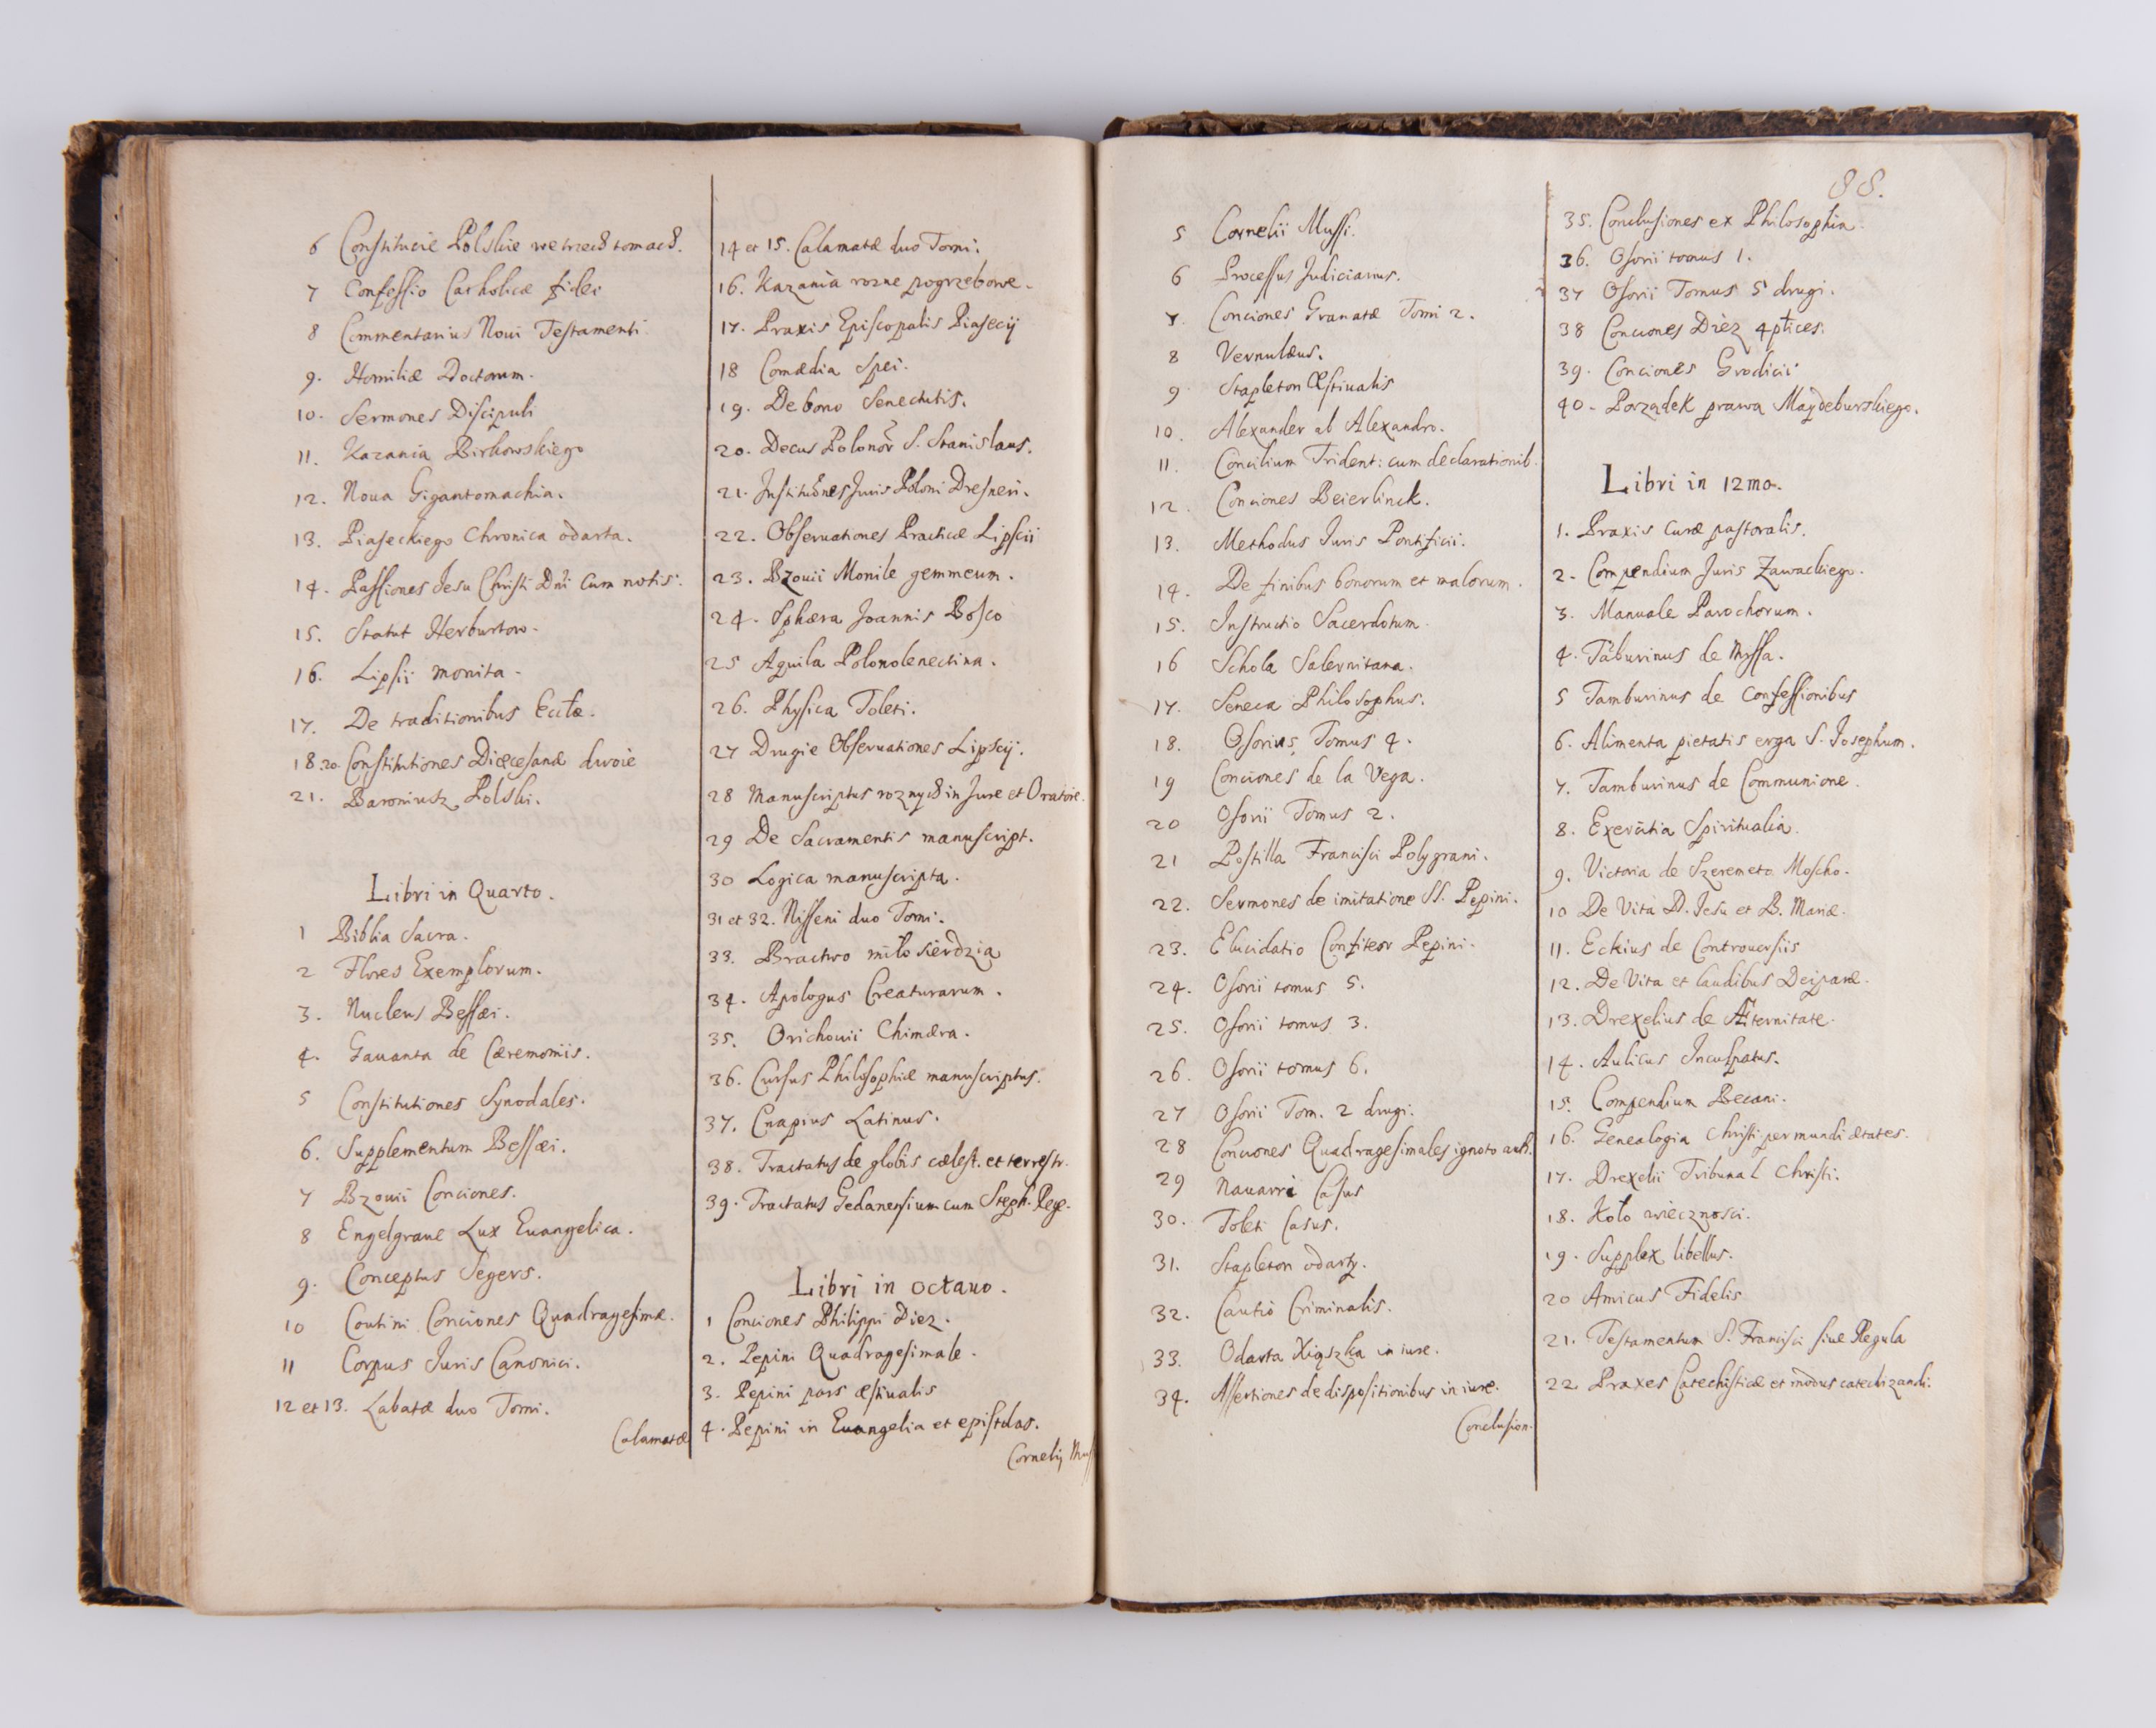 6 Constitucie Polskie we trzech tomach.
7 Confessio Catholicæ fidei
8 Commentarius Noui Testamenti
9. Homiliæ Doctorum.
10. Sermones Discipuli
11. Kazania Birkowskiego
12. Noua Gigantomachia.
13. Piaseckiego Chronica odarta.
14. Passiones Jesu Christi Dni cum notis.
15. Statut Herburtow.
16. Lipsii monita.
17. De traditionibus Eccłæ.
18.20. Constitutiones Diæcesanæ dwoie
21. Baroniusz Polski.
Libri in Quarto.
1 Biblia Sacra.
2 Flores Exemplorum.
3. Nucleus Bessæi.
4. Gauanta de Cæremoniis.
5 Constitutiones Synodales.
6. Supplementum Bessæi.
7 Bzouii Conciones.
8 Engelgraue Lux Euangelica.
9. Conceptus Segers.
10 Coutini Conciones Quadragesimæ.
11 Corpus Juris Canonici.
12 et 13. Labatæ duo Tomi.
Calamatæ
14 et 15. Calamatæ duo Tomi.
16. Kazania rozne pogrzebowe.
17. Praxis Episcopalis Piasecij
18 Comædia Spei.
19. De bono Senectutis.
20. Decus Polonor S. Stanislaus.
21. Institutiones Juris Poloni Dresneri.
22. Obseruationes Practicæ Lipscii
23. Bzouii Monile gemmeum.
24. Sphæra Joannis Bosco
25 Aquila Polonolenectina.
26. Physica Toleti.
27 Drugie Obseruationes Lipscij.
28 Manuscriptus roznych in Jure et Oratorie.
29 De Sacramentis manuscript.
30 Logica manuscripta.
31 et 32. Nisseni duo Tomi.
33. Bractwo miłosierdzia
34. Apologus Creaturarum.
35. Orichouii Chimæra.
36. Cursus Philosophiæ manuscriptus.
37. Cnapius Latinus.
38. Tractatus de globis cælest. et terrestr.
39. Tractatus Gedanensium cum Steph. Rege.
Libri in octauo.
1 Conciones Philippi Diez.
2. Pepini Quadragesimale.
3. Pepini pars æstiualis
4. Pepini in Euangelia et epistolas.
Cornelij Muss
88.
5 Cornelii Mussi.
6 Processus Judiciarius.
7. Conciones Granatæ Tomi 2.
8 Vernulæus.
9. Stapleton Æstiualis
10. Alexander ab Alexandro.
11. Concilium Trident: cum declarationib.
12. Conciones Beierlinck.
13. Methodus Juris Pontificii.
14. De finibus bonorum et malorum.
15. Instructio Sacerdotum.
16 Schola Salernitana.
17. Seneca Philosophus.
18. Osorius Tomus 4.
19 Conciones de la Vega.
20 Osorii Tomus 2.
21 Postilla Francisci Polygrani.
22. Sermones de imitatione SS. Pepini.
23. Elucidatio Confiteor Pepini.
24. Osorii tomus 5.
25. Osorii tomus 3.
26. Osorii tomus 6.
27 Osorii Tom. 2 drugi.
28 Conciones Quadragesimales ignoto auth.
29 Nauarri Casus
30. Toleti Casus.
31. Stapleton odarty.
32. Cautio Criminalis.
33. Odarta Xiąszka in iure.
34. Assertiones de dispositionibus in iure.
Conclusion.
35. Conclusiones ex Philosophia.
36. Osorii tomus 1.
37 Osorii Tomus 5 drugi.
38 Conciones Diez 4plices.
39. Conciones Grodicii
40. Porządek prawa Maydeburskiego.
Libri in 12mo.
1. Praxis curæ pastoralis.
2. Compendium Juris Zawackiego.
3. Manuale Parochorum.
4. Tāburinus de Missa.
5 Tamburinus de Confessionibus
6. Alimenta pietatis erga S. Josephum.
7. Tamburinus de Communione.
8. Exercitia Spiritualia.
9. Victoria de Szeremeto Moscho.
10 De Vita D. Jesu et B. Mariæ.
11. Eckius de Controuersiis
12. De Vita et laudibus Deiparæ.
13. Drexelius de Æternitate.
14. Aulicus Inculpatus.
15. Compendium Becani.
16. Genealogia Christi per mundi ætates.
17. Drexelii Tribunal Christi.
18. Koło wiecznosci.
19. Supplex libellus.
20 Amicus Fidelis
21. Testamentum S. Francisci siue Regula
22. Praxes Catechisticæ et modus catechizandi.